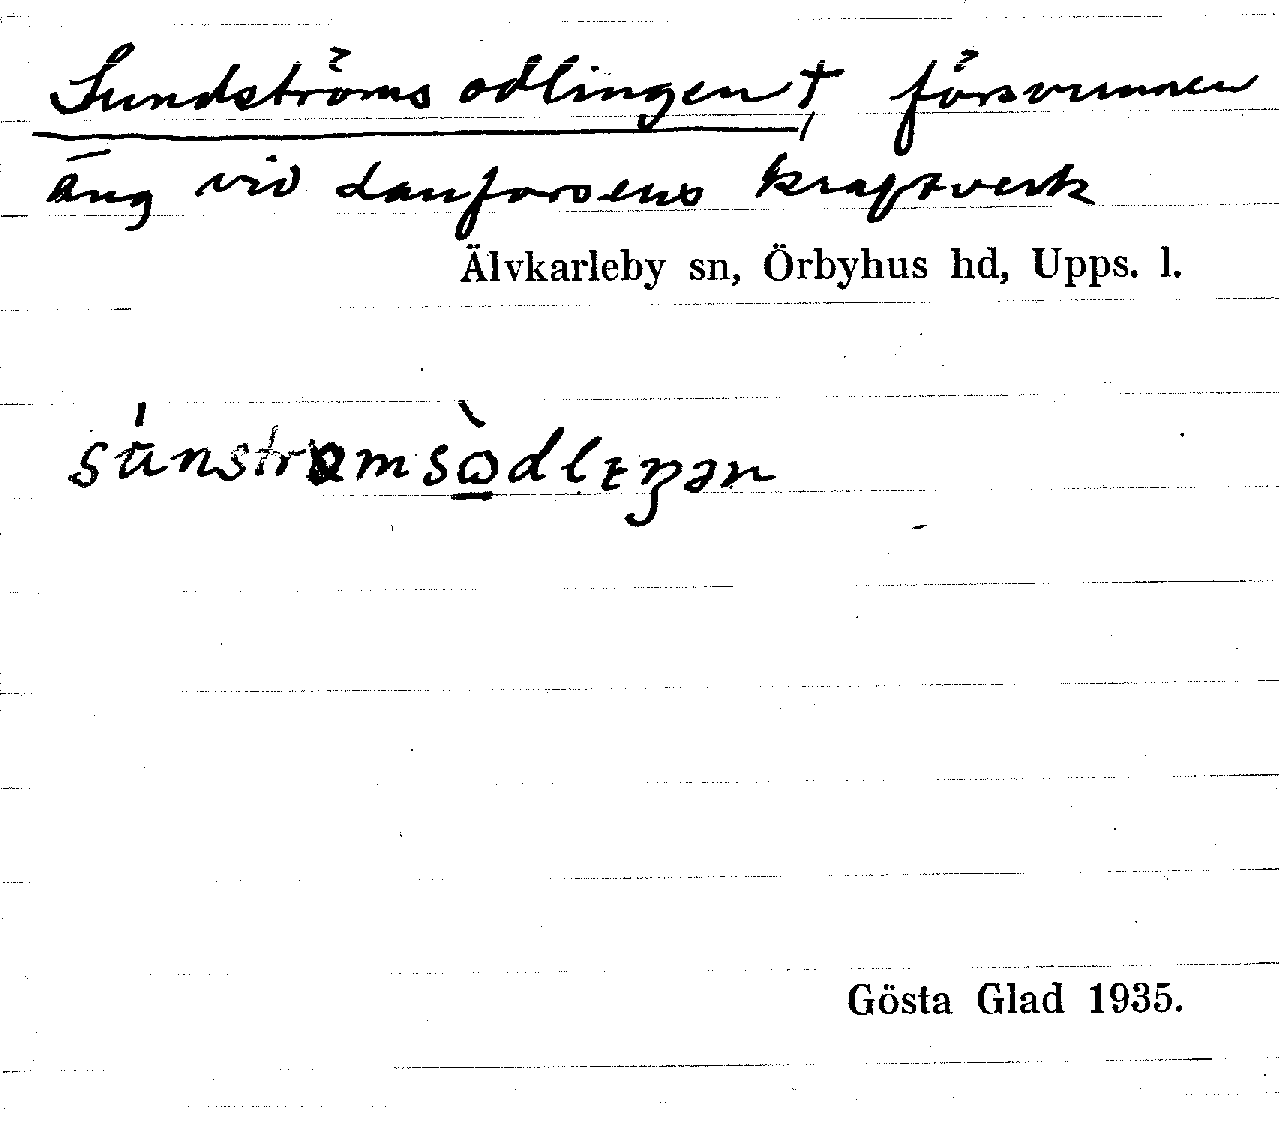 Sundströms odlingen †, försvunnen
äng vid Lanforsens kraftverk
Älvkarleby sn, Örbyhus hd, Upps. l.
Gösta Glad 1935.